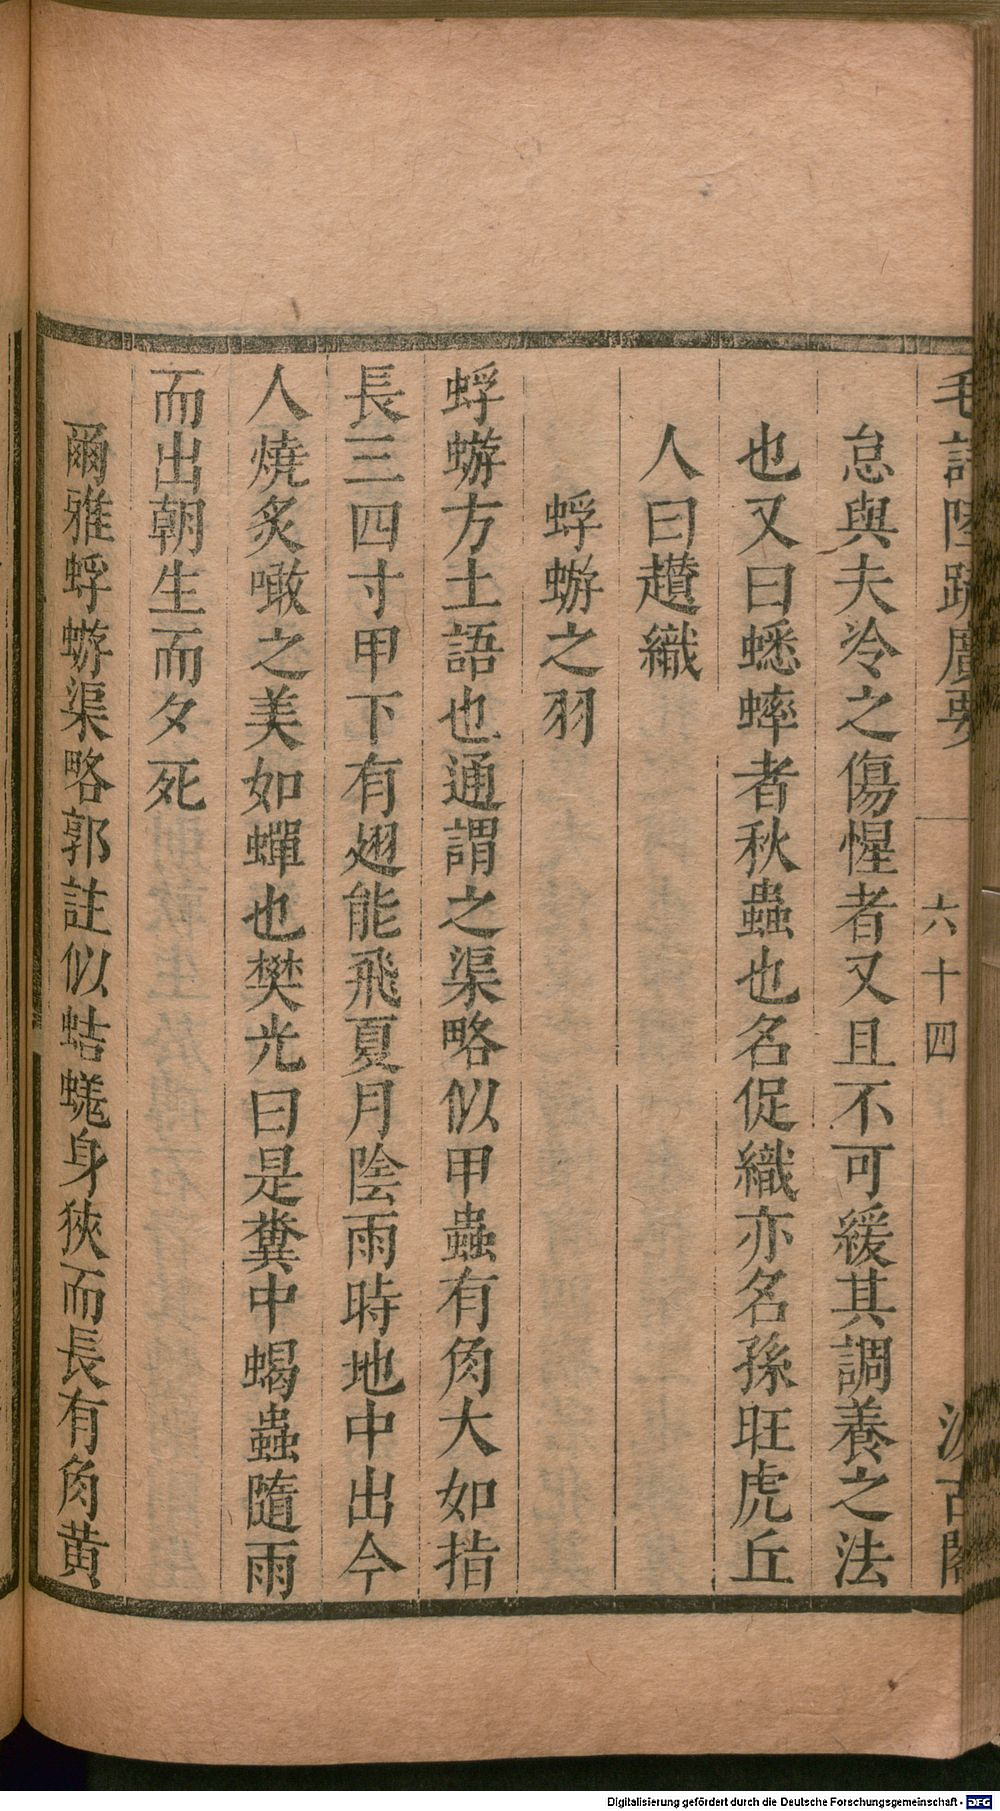 毛詩陸疏廣要
六十四
汲古閣
怠與夫冷之傷惺者又且不可緩其調養之法
也又曰蟋蟀者秋蟲也名促織亦名孫旺虎丘
人曰趲織
蜉蝣之羽
蜉蝣方土語也通謂之渠略似甲蟲有角大如指
長三四寸甲下有翅能飛夏月陰雨時地中出今
人燒炙噉之美如蟬也樊光曰是糞中蝎蟲隨雨
而出朝生而夕死
爾雅蜉蝣渠略郭註似蛣蜣身狹而長有角黄
Digitalisierung gefördert durch die Deutsche Forschungsgemeinschaft - DFG